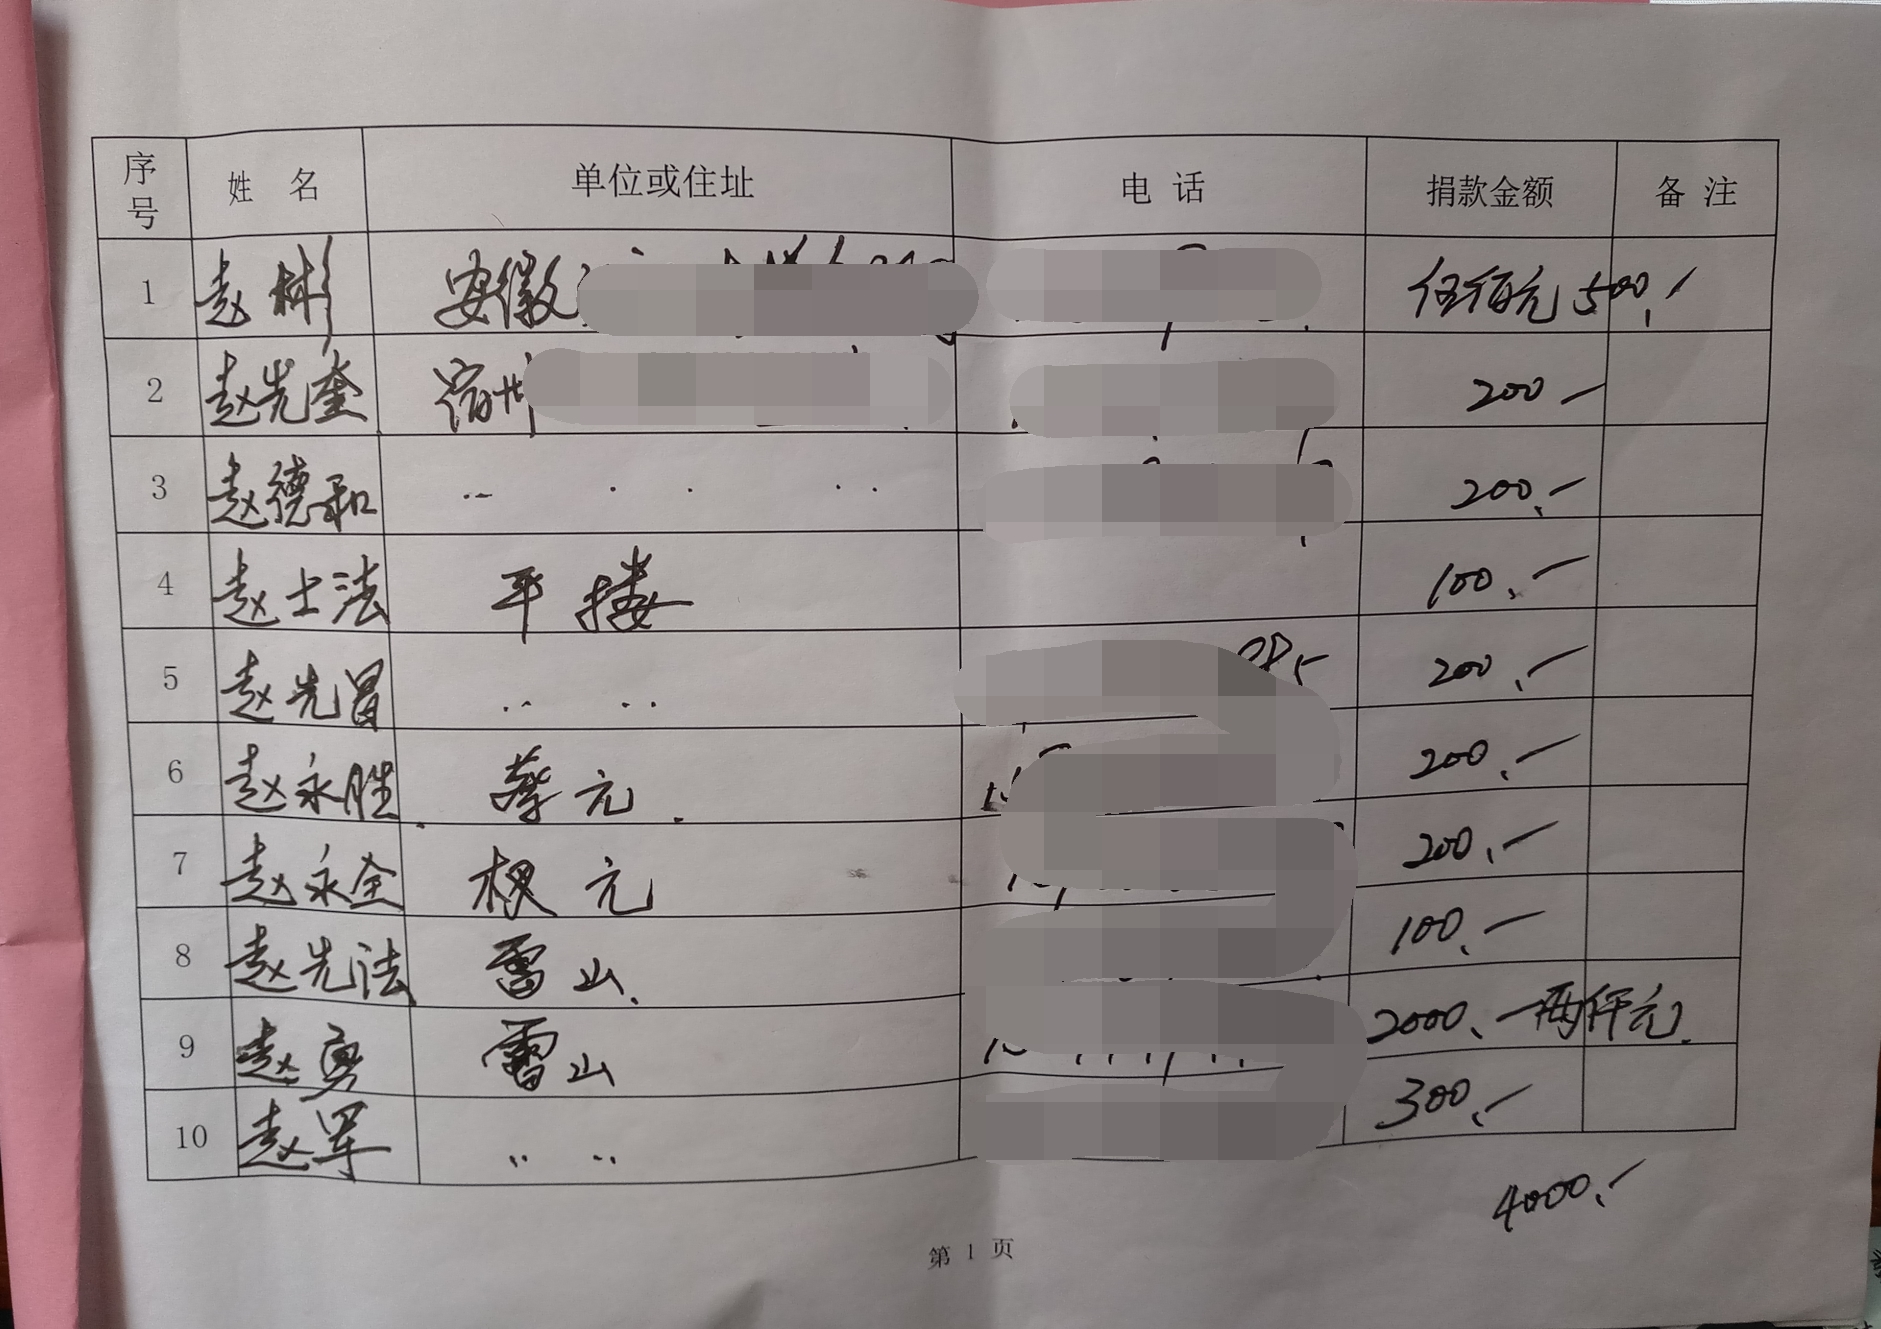 序号 姓 名 单位或住址 电 话 捐款金额 备 注
1 赵彬 安徽 伍佰元 500.-
2 赵先奎 宿州 200-
3 赵德和 200.-
4 赵士法 平楼 100.-
5 赵先冒 200.-
6 赵永胜 蔡元 200.-
7 赵永全 根元 200.-
8 赵先法 雷山 100.-
9 赵勇 雷山 2000.-两仟元
10 赵军 300.-
4000.-
第 1 页